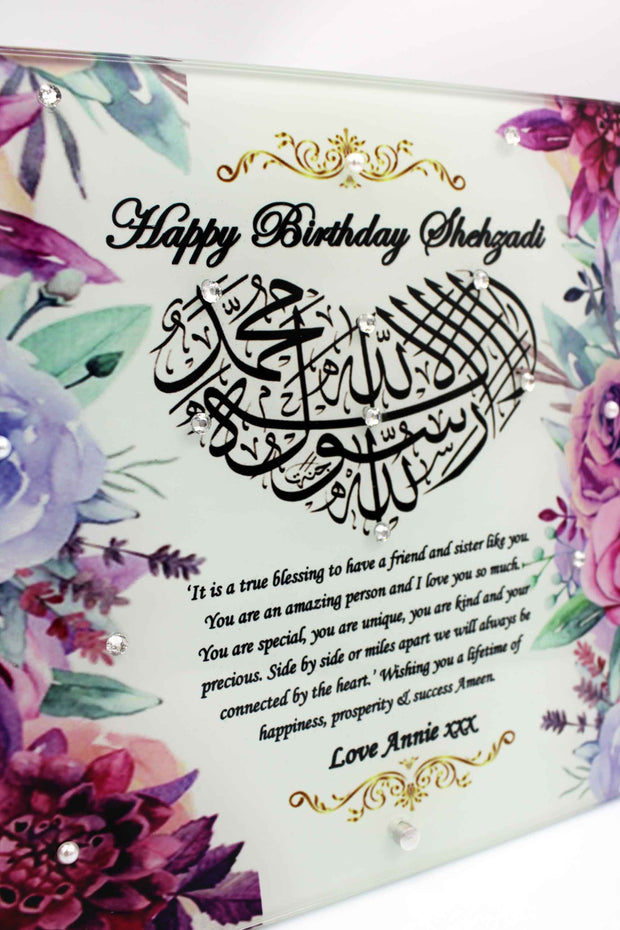 Happy Birthday Shehzadi
لا إله إلا الله محمد رسول الله
'It is a true blessing to have a friend and sister like you.
You are an amazing person and I love you so much.
You are special, you are unique, you are kind and your
precious. Side by side or miles apart we will always be
connected by the heart.' Wishing you a lifetime of
happiness, prosperity & success Ameen.
Love Annie xxx